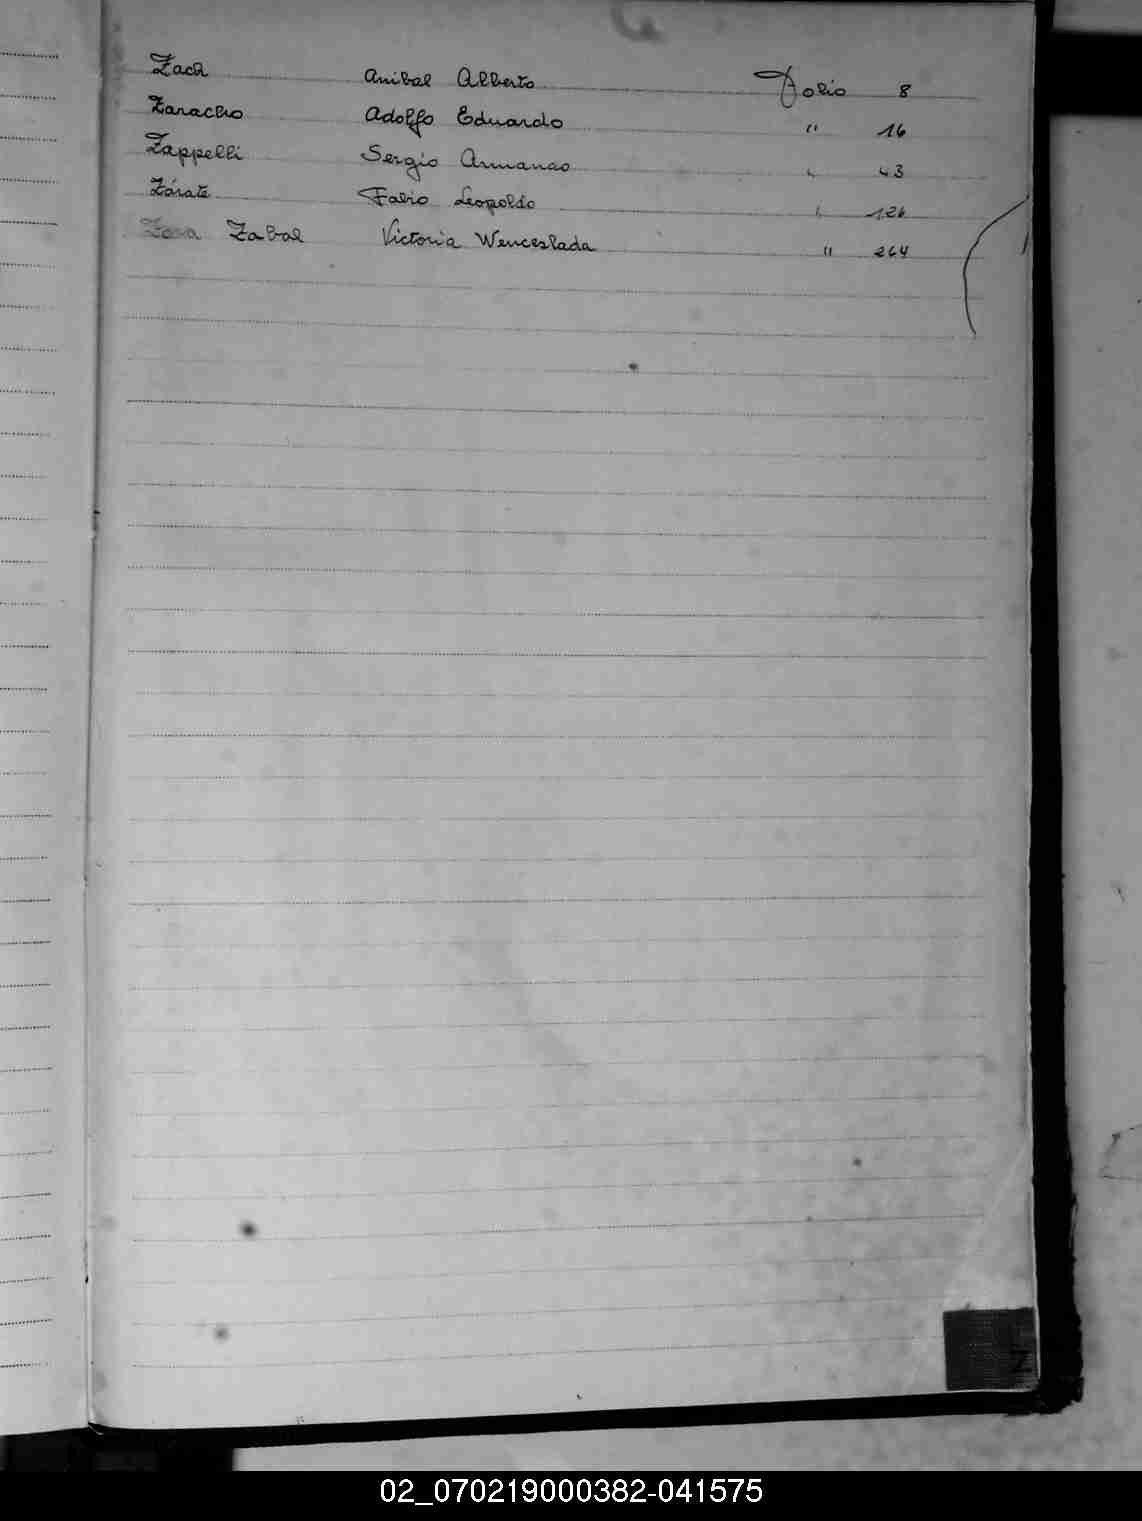 Zach Anibal Alberto Folio 8
Zaracho Adolfo Eduardo " 16
Zappelli Sergio Armando " 43
Zárate Fabio Leopoldo " 126
Zabal Victoria Wenceslada " 264
Z
02_070219000382-041575